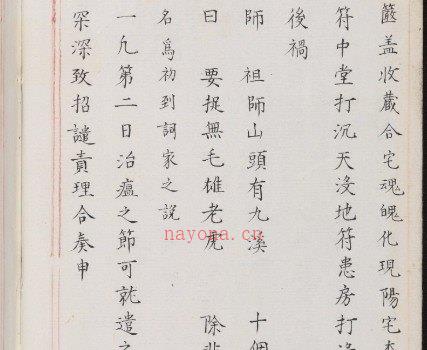 篋盖收藏合宅魂魄化現陽宅
符中堂打沉天没地符患房打
後禍
師　祖師山頭有九溪　十個
曰　要捉無毛雄老虎　除
名爲初到詞家之說
一凡第二日治瘟之節可就遣之
罙深致招譴責理合奏申
nayona.cn